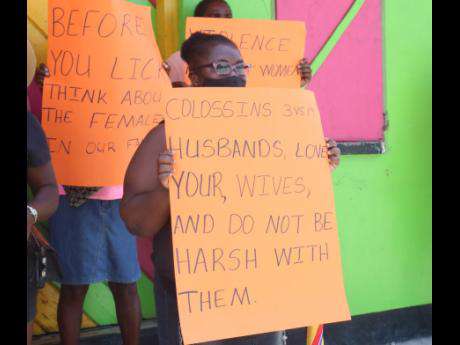 BEFORE
YOU LICK
THINK ABOU
THE FEMALE
IN OUR
VIOLENCE
WOMEN
COLOSSINS 3 VS
HUSBANDS, LOVE
YOUR, WIVES,
AND DO NOT BE
HARSH WITH
THEM.